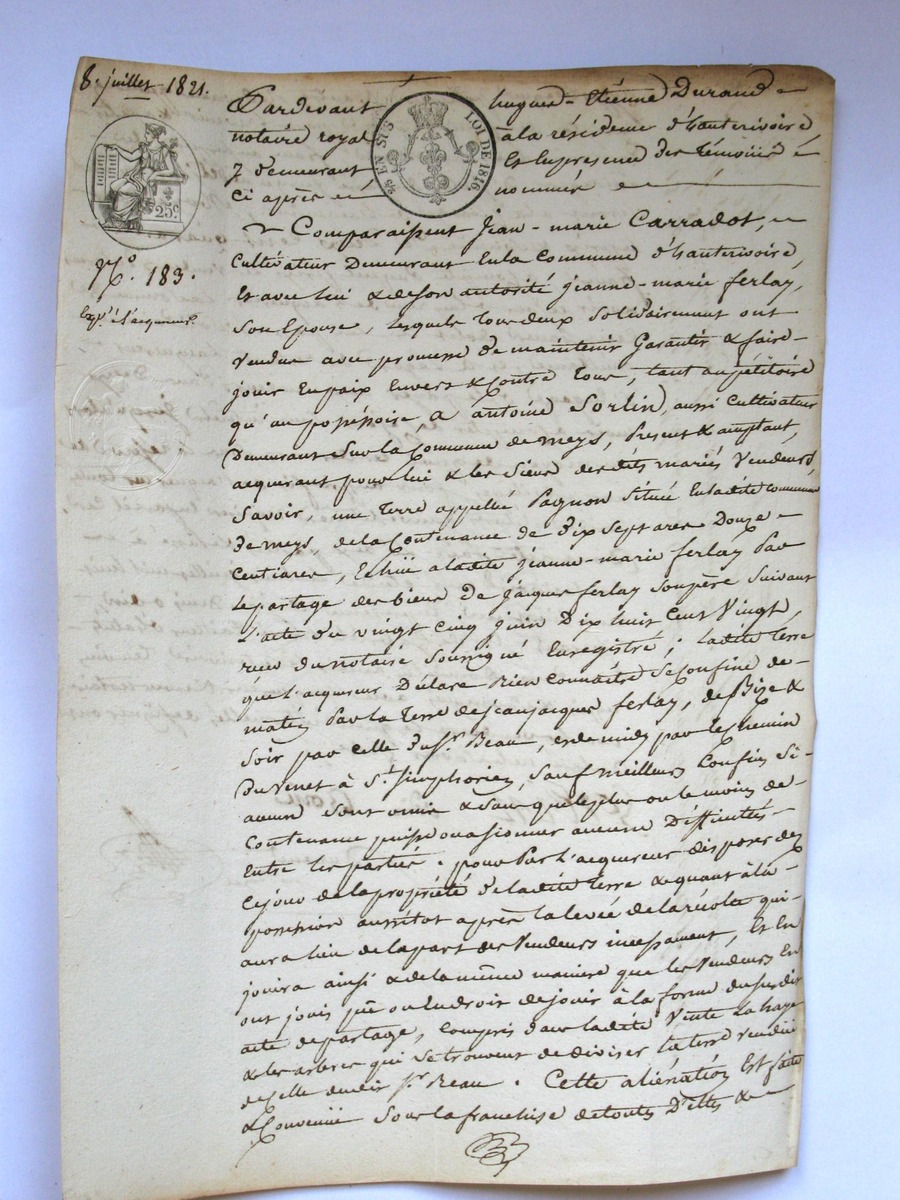 8. juillet 1821.
25 EN SUS LOI DE 1816
25c.
N.o 183.
Exp.é à l'acquéreur.
Pardevant hugues-Etiénne Durand
notaire royal à la résidence d'hauterivoire
y demeurant Et En presence des témoins
ci après nommés
Comparaissent Jean-marie Carradot,
cultivateur Demeurant En la Commune d'hauterivoire,
Et avec lui & de son autorité jeanne-marie ferlay,
son Epouse, lesquels tous deux solidairement ont
vendus avec promesse de maintenir Garantir & faire
jouir En paix Envers & Contre tous, tant au pétitoire
qu'au possessoire, a antoine Sorlin, aussi cultivateur
Demeurant Sur la Commune de meys, Présent & acceptant,
acquerant pour lui & les Siens des dits mariés Vendeurs
Savoir, une terre appellée Pagnon située En la dite commune
de meys, de la Contenance de Dix sept ares Douze
Centiares, Echüe a la dite jeanne-marie ferlay Par
le partage des biens de Jacques ferlay son père suivant
l'acte du vingt cinq juin Dix huit Cent Vingt,
recu du notaire soussigné Enregistré; ladite terre
que l'acquereur Déclare bien Connaitre se Confine de
matin Par la terre de jean jacques ferlay, de Bize &
soir par celle du Sr. Beau, et de midy par le chemin
Duvenet à St. simphorien, sauf meilleurs Confins si
aucuns sont omis & sans que le plus ou le moins de
Contenance puisse occasionner aucunes Difficultés
Entre les parties. pour Par l'acquereur disposer dez
ce jour de la propriété de la dite terre & quant à la
possession aussitot après la levée de la récolte qui
aura lieu de la part des Vendeurs incessament, Et En
jouira ainsi & de la même maniere que les Vendeurs En
ont jouis pû ou En droit de jouir à la forme du susdit
acte de partage, Compris dans la dite Vente la haye
& les arbres qui se trouvent de diviser la terre vendüe
de celle du dit Sr. Beau. Cette aliénation Est faite
& Convenüe Sous la franchise de toutes Dettes &